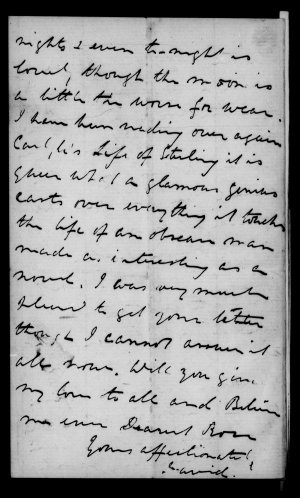 nights & even tonight is
lovely, though the moon is
a little the worse for wear.
I have been reading over again
Carlyle's Life of Sterling it is
queer what a glamour genius
casts over everything it touches
the life of an obscure man
made as interesting as a
novel. I was very much
pleased to get your letter
though I cannot answer it
all now. Will you give
my love to all and Believe
me ever Dearest
Yours affectionately
David.